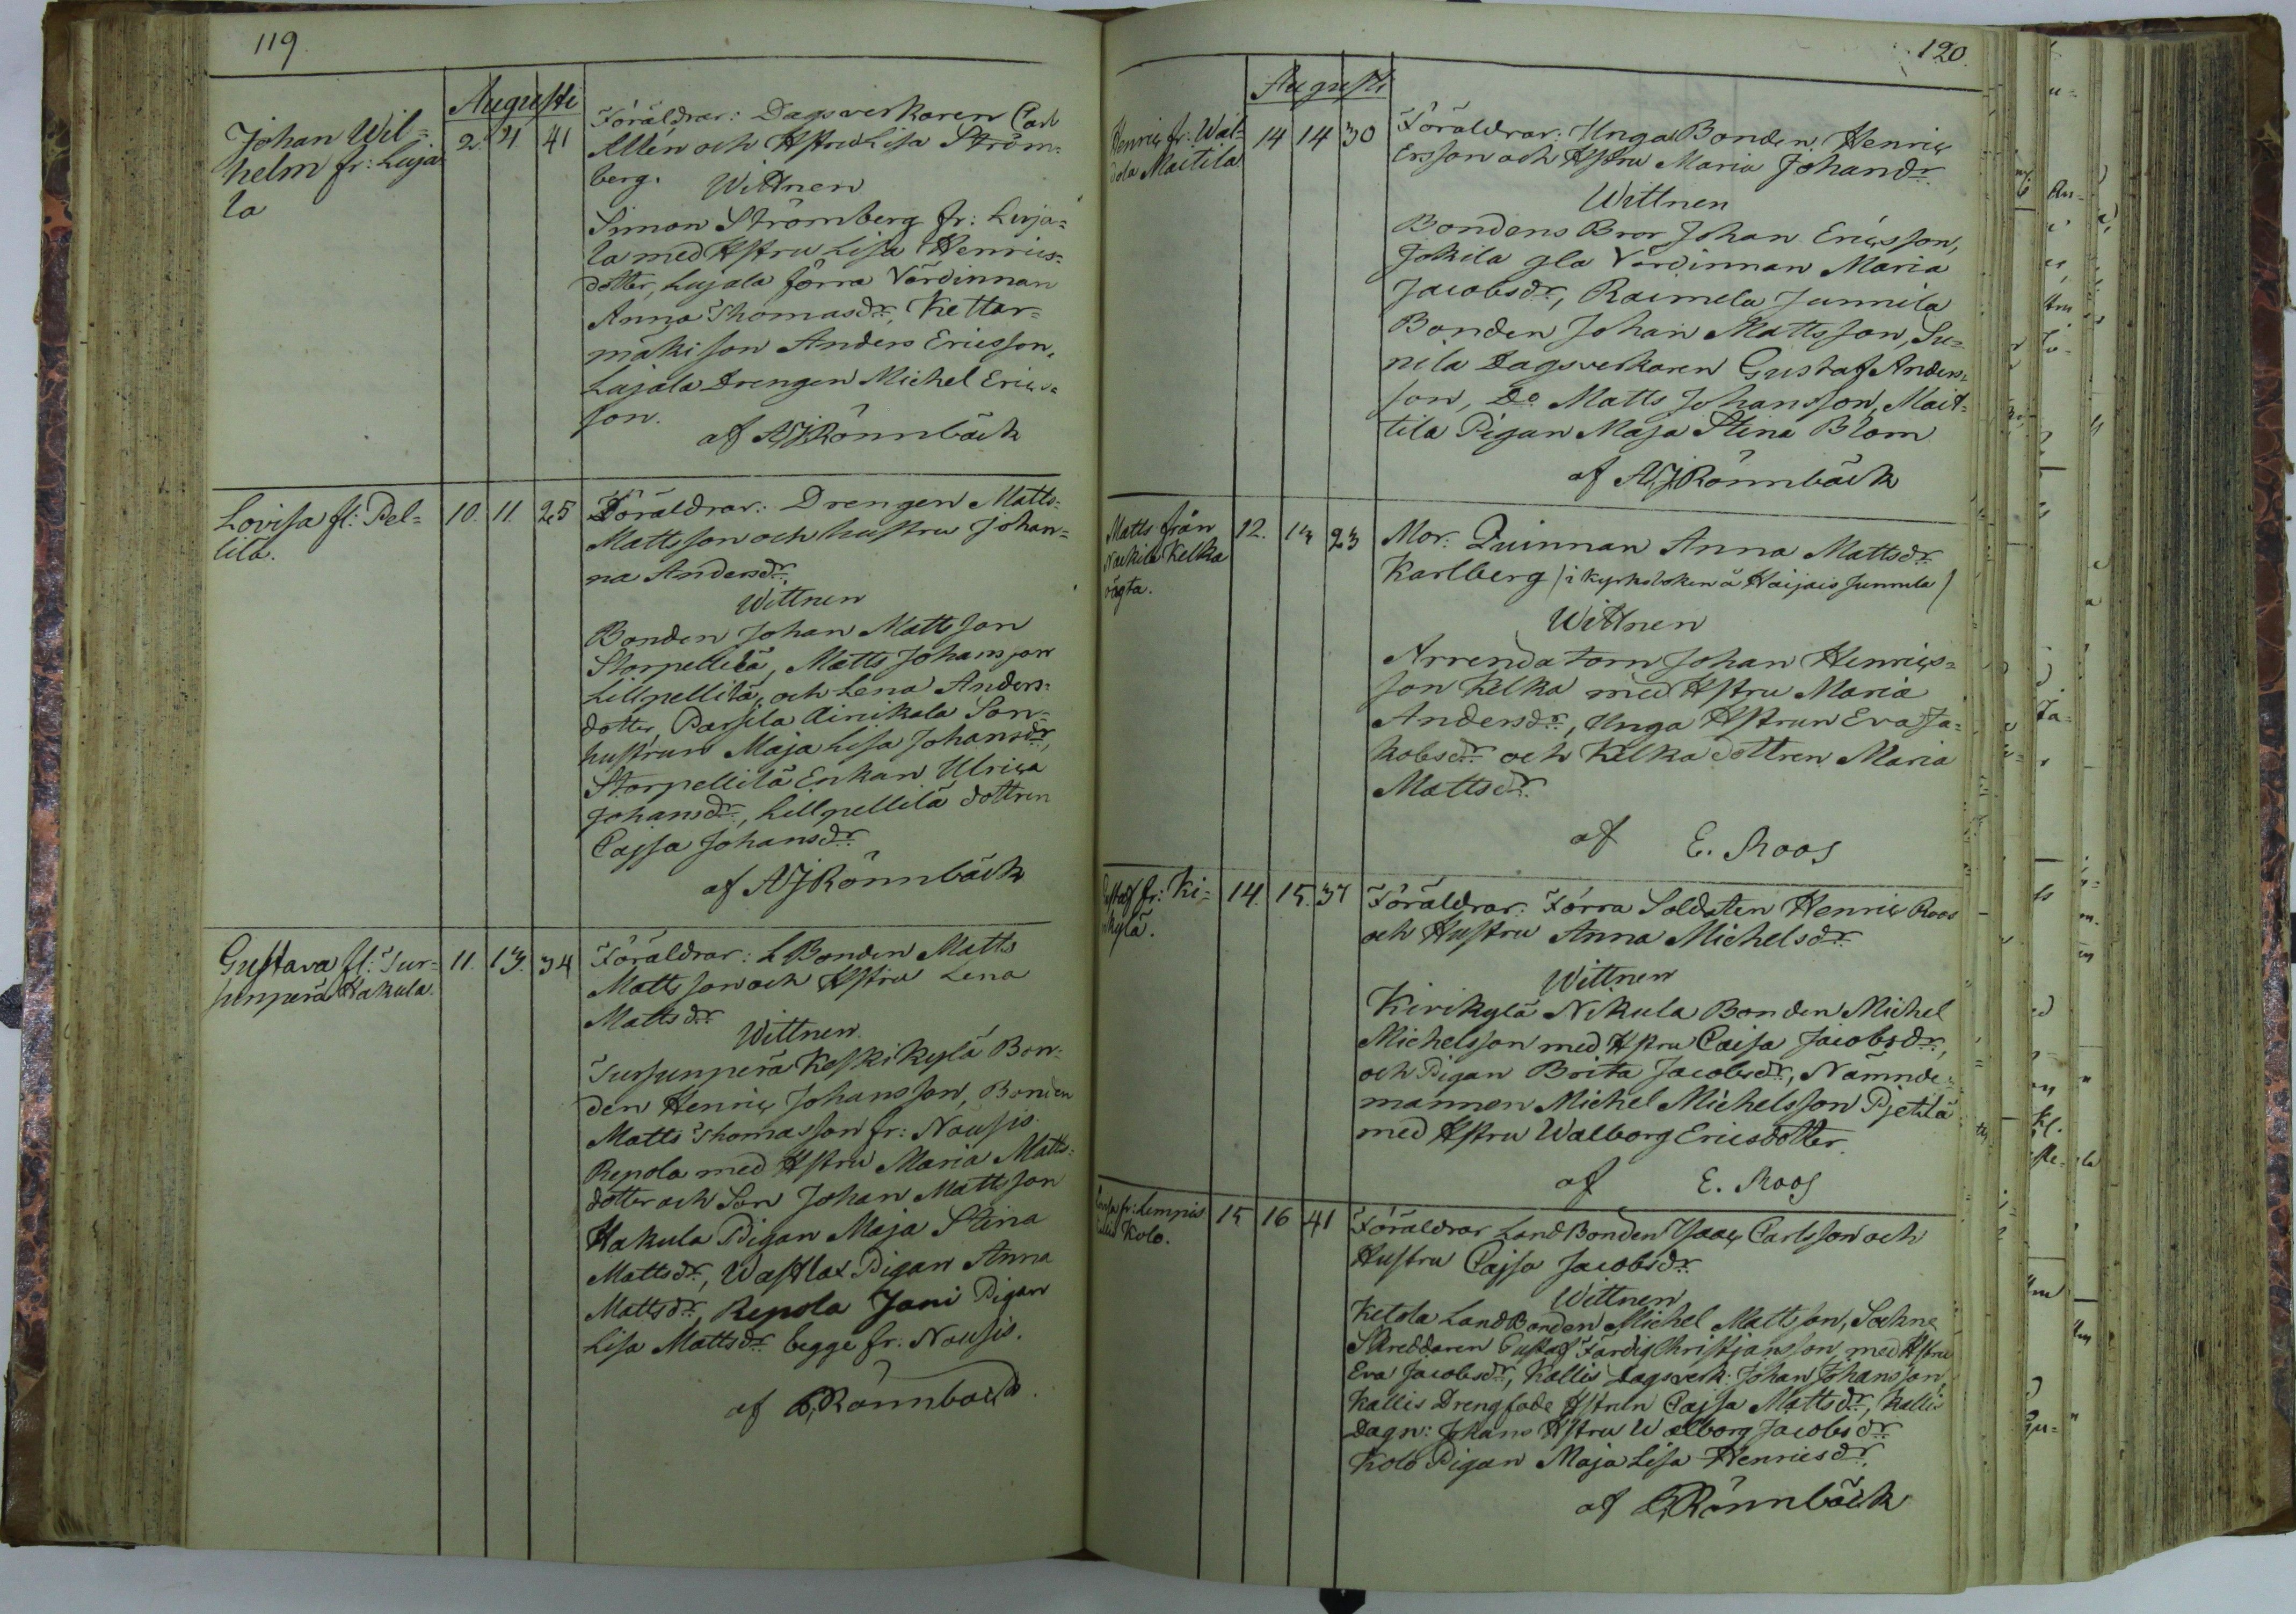 119
Augusti
Johan Wil=
helm fr: Luja
la
2. 4. 41
Föräldrar: Dagsverkaren Carl
Allén och Hstru Lisa Ström=
berg.
Wittnen
Simon Strömberg fr: Luja=
la med Hstru Lisa Henrics=
dotter, Lujala förra Värdinnan
Anna Thomasdr, Kettar=
mäki son Anders Ericsson,
Lujala Drengen Michel Erics=
son.
af AJRönnbäck
Lovisa fl: Pel=
lilä.
10. 11. 25
Föräldrar: Drengen Matts
Mattsson och hustru Johan=
na Andersdr.
Wittnen
Bonden Johan Mattsson
Storpellilä, Matts Johansson
Lillpellilä, och Lena Anders=
dotter, Parsila Ainikala Son=
hustrun Maja Lisa Johansdr,
Storpellilä Enkan Ulrica
Johansdr, Lillpellilä dottren
Cajsa Johansdr.
af AJRönnbäck
Gustava fl: Tur=
sunperä Hakula.
11. 13. 34
Föräldrar: LBonden Matts
Mattsson och Hstru Lena
Mattsdr.
Wittnen
Tursunperä Keskikylä Bon=
den Henric Johansson, Bonden
Matts Thomasson fr: Nousis
Repola med Hstru Maria Matts=
dotter och Son Johan Mattsson
Hakula Pigan Maja Stina
Mattsdr, Wastlax Pigan Anna
Mattsdr, Repola Jani Pigan
Lisa Mattsdr begge fr: Nousis.
af Rönnback.
120.
Augusti
Henric fr: Wal=
dola Maitila
14 14 30
Föräldrar: Unga Bonden Henric
Ersson och Hstru Maria Johandr.
Wittnen
Bondens Bror Johan Ericsson,
Jokila gla Värdinnan Maria
Jacobsdr, Raimela Junnila
Bonden Johan Mattsson, Su=
nila Dagsverkaren Gustaf Anders=
son, Do Matts Johansson, Mait=
tila Pigan Maja Stina Blom
af AJRönnbäck
Matts från
Naikila Kelka
ägta.
12. 13 23
Mor. Quinnan Anna Mattsdr
Karlberg (i kyrkoboken å Haijais Junnila)
Wittnen
Arrendatorn Johan Henrics=
son Kelka med Hstru Maria
Andersdr, Unga Hstrun Eva Ja=
kobsdr och Kelka dottren Maria
Mattsdr.
af E. Roos
Gustaf fr: Ki=
rikylä.
14. 15. 37
Föräldrar: Förra Soldaten Henric Roos
och Hustru Anna Michelsdr.
Wittnen
Kirikylä Nikula Bonden Michel
Michelsson med Hstru Caisa Jacobsdr,
och Pigan Brita Jacobsdr, Nämnde=
mannen Michel Michelsson Pjetilä
med Hstru Walborg Ericsdotter.
af E. Roos
fr: Lempis
Kolo.
15 16 41
Föräldrar LandBonden Isaac Carlsson och
Hustru Cajsa Jacobsdr.
Wittnen
Ketola LandBonden Michel Mattsson, Sockne
Skreddaren Gustaf Färdig Christjansson med Hstru
Eva Jacobsdr, Kallis Dagsverk: Johan Johansson,
Kallis Drengfode Hstruln Cajsa Mattsdr, Kallis
Dagsv: Johans Hstru Walborg Jacobsdr
Kolo Pigan Maja Lisa Henricsdr.
af Rönnbäck